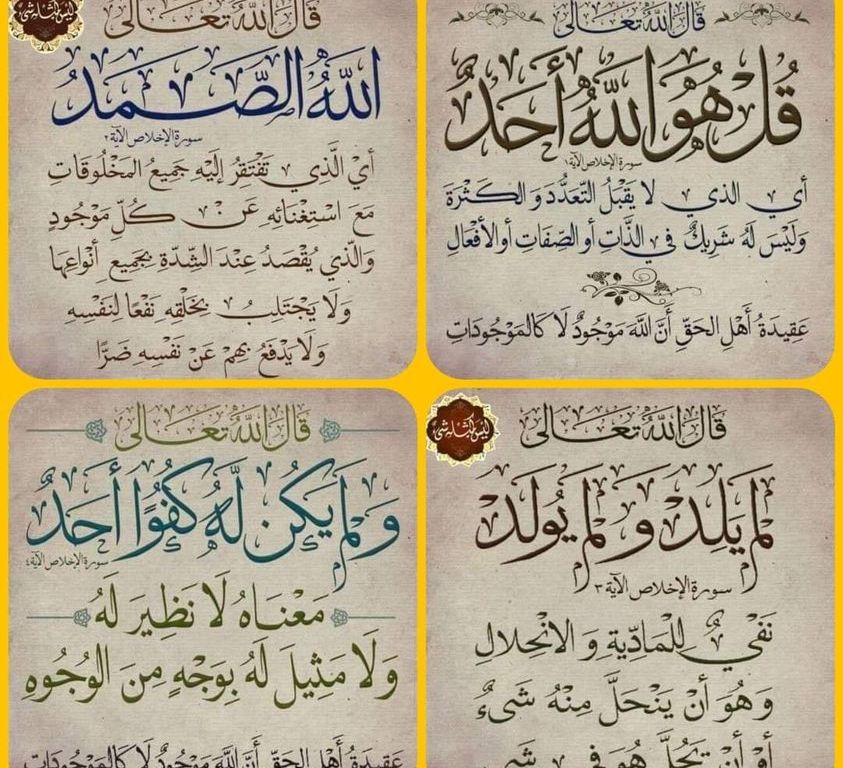 قَالَ اللّٰهُ تَعَالَى
قُلْ هُوَ اللّٰهُ أَحَدٌ
سورة الإخلاص الآية ١
أي الذي لا يَقْبَلُ التَّعَدُّدَ وَالكَثْرَةَ
وَلَيْسَ لَهُ شَرِيكٌ في الذَّاتِ أو الصِّفَاتِ أو الأفْعَالِ
عَقِيدَةُ أَهْلِ الحَقِّ أَنَّ اللّٰهَ مَوْجُودٌ لَا كَالمَوْجُودَاتِ
ليس كمثله شىء
قَالَ اللّٰهُ تَعَالَى
اللّٰهُ الصَّمَدُ
سورة الإخلاص الآية ٢
أي الَّذِي تَفْتَقِرُ إلَيْهِ جَمِيعُ المَخْلُوقَاتِ
مَعَ اسْتِغْنَائِهِ عَنْ كُلِّ مَوْجُودٍ
وَالَّذي يُقْصَدُ عِنْدَ الشِّدّةِ بِجَمِيعِ أنْوَاعِهَا
وَلَا يَجْتَلِبُ بِخَلْقِهِ نَفْعًا لِنَفْسِهِ
وَلَا يَدْفَعُ بِهِمْ عَنْ نَفْسِهِ ضَرًّا
ليس كمثله شىء
قَالَ اللّٰهُ تَعَالَى
لَمْ يَلِدْ وَلَمْ يُولَدْ
سورة الإخلاص الآية ٣
نَفْيٌ لِلْمَادِّيةِ وَالانْحلالِ
وَهُوَ أَنْ يَنْحَلَّ مِنْهُ شَىْءٌ
أوْ أَنْ يَحُلَّ هُوَ في شىء
قَالَ اللّٰهُ تَعَالَى
وَلَمْ يَكُن لَّهُ كُفُوًا أَحَدٌ
سورة الإخلاص الآية ٤
مَعْنَاهُ لَا نَظِيرَ لَهُ
وَلَا مَثِيلَ لَهُ بِوَجْهٍ مِنَ الوُجُوهِ
عَقِيدَةُ أَهْلِ الحَقِّ أَنَّ اللّٰهَ مَوْجُودٌ لَا كَالمَوْجُودَاتِ